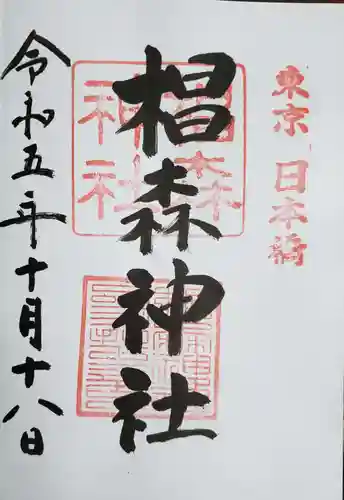 東京 日本橋
椙森神社
椙森神社
令和五年十月十八日